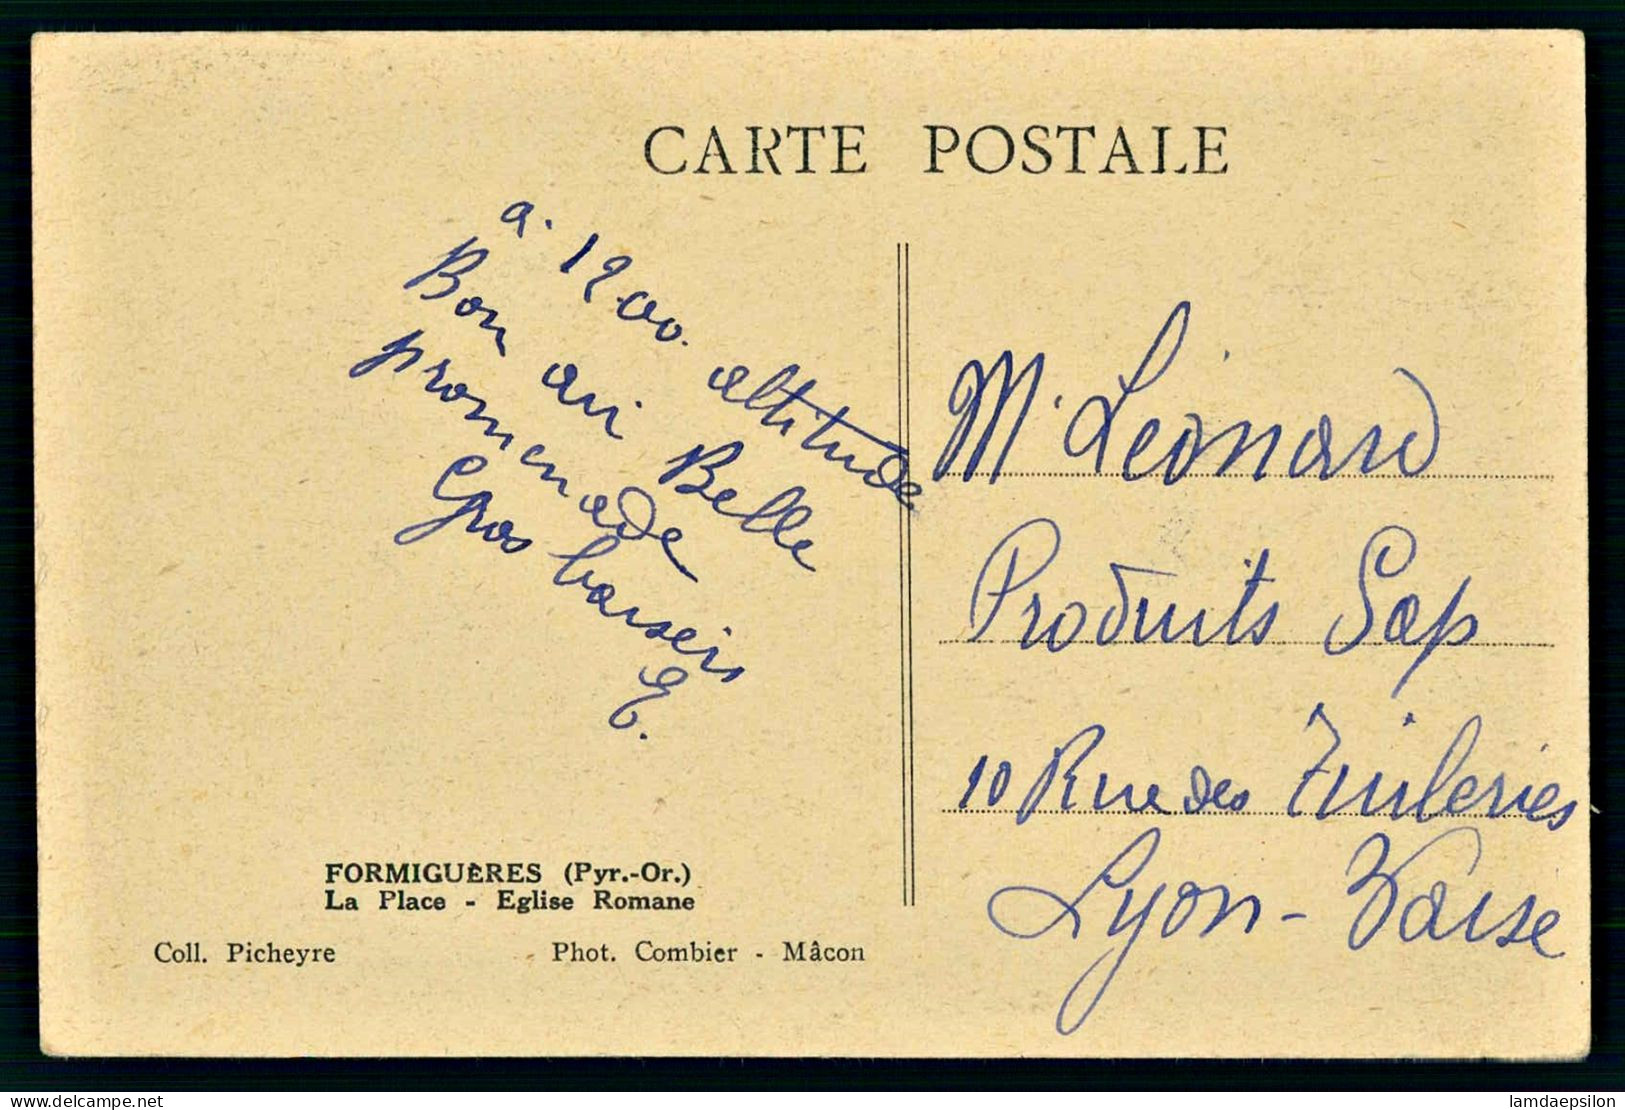 CARTE POSTALE
a. 1900. altitude
Bon air Belle
promenade
Gros baisers
G.
M. Léonard
Produits Sap
10 Rue des Tuileries
Lyon - Vaise
FORMIGUÈRES (Pyr.-Or.)
La Place - Eglise Romane
Coll. Picheyre
Phot. Combier - Mâcon
delcampe.net
lamdaepsilon